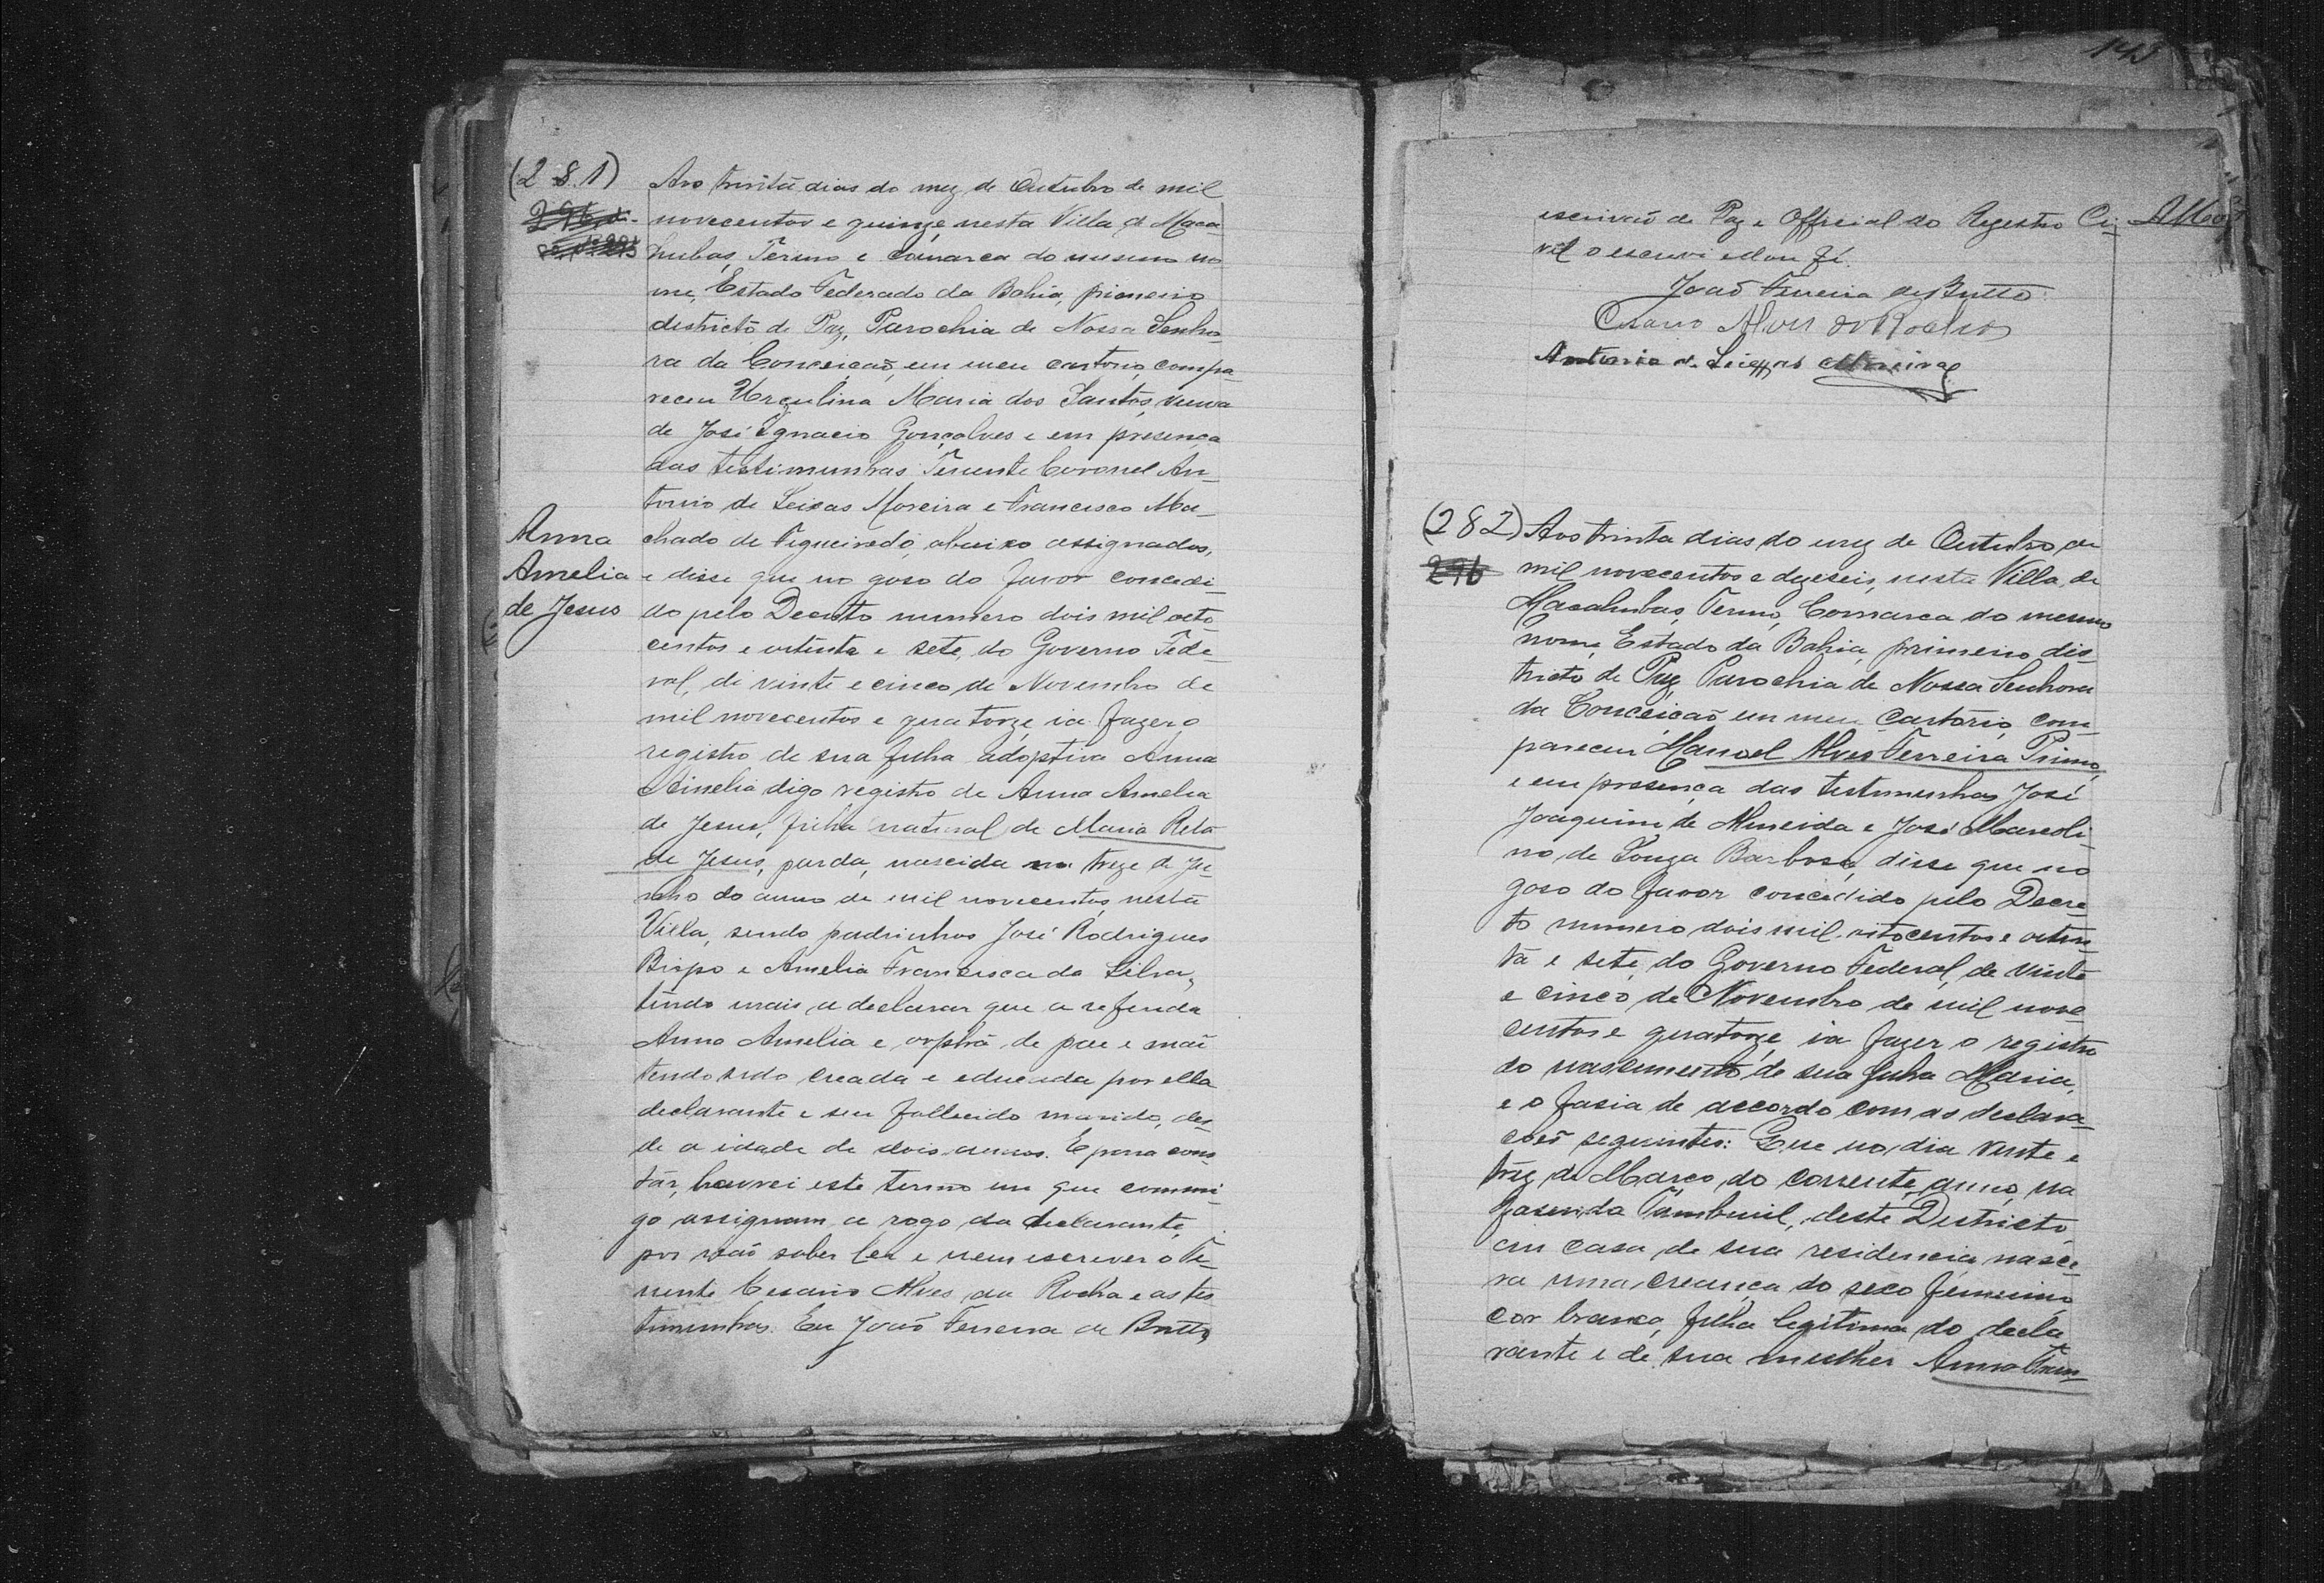 (281)
Aos trinta dias do mez de Outubro de mil
novecentos e quinze, nesta Villa de Maca
hubas, Termo e Comarca do mesmo no
me, Estado Federado da Bahia, primeiro
districto de Paz, Parochia de Nossa Senho-
ra da Conceicaõ, em meu cartorio, compa-
receu Urgulina Maria dos Santos, viuva
de José Ignacio Gonçalves e em presença
das testimunhas Tenente Coronel An-
tonio de Seixas Moreira e Francisco Ma-
chado de Figueiredo, abaixo assignados,
Anna
Amelia
de Jesus
e disse que no goso do favor concedi-
do pelo Decreto numero dois mil oito
centos e oitenta e sete, do Governo Fede-
ral, de vinte e cinco de Novembro de
mil novecentos e quatorze, ia fazer o
registro de sua filha adoptiva Anna
Amelia digo registro de Anna Amelia
de Jesus, filha natural de Maria Rita
de Jesus, parda, nascida treze de Ju-
nho do anno de mil novecentos, nesta
Villa, sendo padrinhos José Rodrigues
Bispo e Amelia Francisca da Silva,
tendo mais a declarar que a referida
Anna Amelia e orphã de pae e mãe
tendo sido creada e educada por ella
declarante e seu fallecido marido, des-
de a idade de dois annos. E para cons-
tar, lavrei este termo em que commi-
go assignam a rogo da declarante,
por naõ saber ler e nem escrever o Te-
nente Cesario Alves da Rocha e as tes
timunhas. Eu João Ferreira de Britto,
143
escrivaõ de Paz e Official do Registro Ci-
vil o escrevi e dou fé.
João Ferreira de Britto
Cesario Alves da Rocha
Antonio de Seixas Moreira
(282)
296
Aos trinta dias do mez de Outubro de
mil novecentos e dezeseis, nesta Villa de
Macahubas, Termo, Comarca do mesmo
nome, Estado da Bahia, primeiro dis-
tricto de Paz, Parochia de Nossa Senhora
da Conceiçaõ em meu Cartorio, com-
pareceu Manoel Alves Ferreira Primo,
e em presença das testimunhas José
Joaquim de Almeida e José Marcoli-
no de Souza Barbosa, disse que no
goso do favor concedido pelo Decre-
to numero dois mil oitocentos e oiten-
ta e sete, do Governo Federal, de vinte
e cinco de Novembro de mil nove
centos e quatorze, ia fazer o registro
do nascimento de sua filha Maria,
e o fasia de accordo com as declara-
çoẽs seguintes: Que no dia vinte e
trez de Março do corrente anno, na
fasenda Tamburil, deste Districto
em casa de sua residencia, nasce-
ra uma creança do sexo femenino
cor branca, filha legitima do decla
rante e de sua mulher Anna Fran-